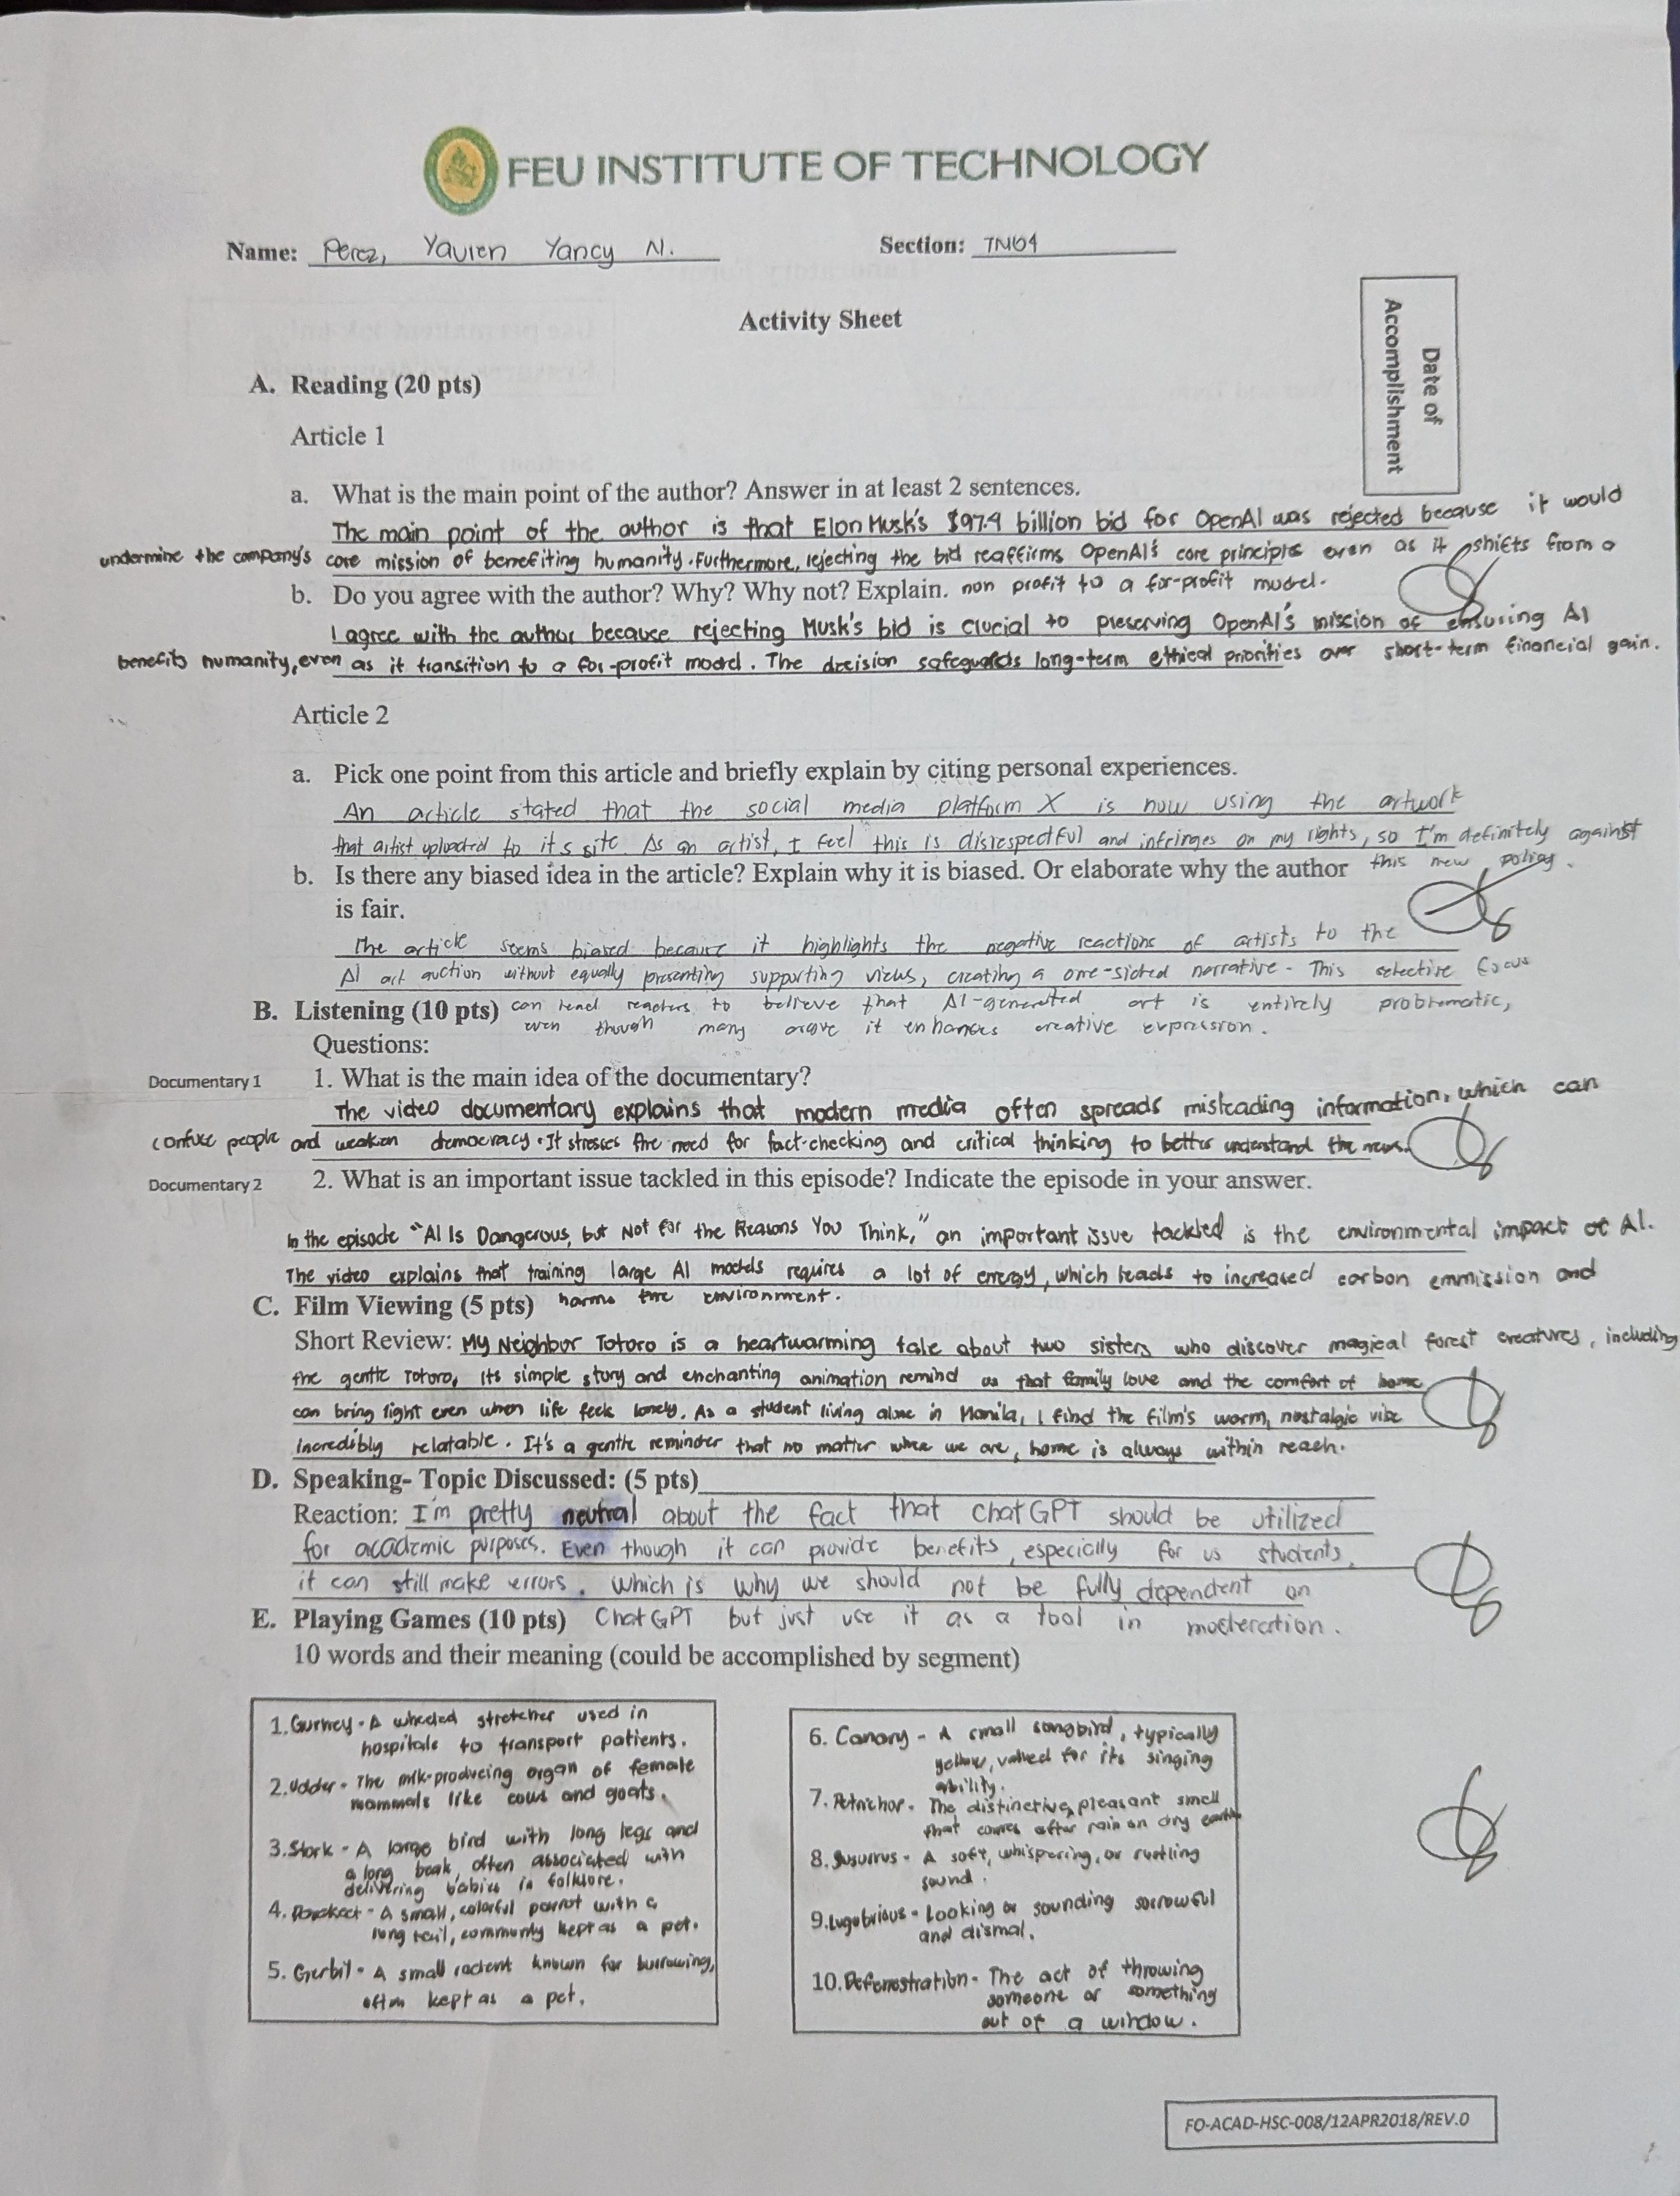 FEU INSTITUTE OF TECHNOLOGY
Name: Perez, Yavien Yancy N. Section: TN04
Date of
Accomplishment
Activity Sheet
A. Reading (20 pts)
Article 1
a. What is the main point of the author? Answer in at least 2 sentences.
The main point of the author is that Elon Musk's $97.4 billion bid for OpenAI was rejected because it would
undermine the company's core mission of benefiting humanity. Furthermore, rejecting the bid reaffirms OpenAI's core principle even as it shifts from a
b. Do you agree with the author? Why? Why not? Explain. non profit to a for-profit model.
I agree with the author because rejecting Musk's bid is crucial to preserving OpenAI's mission of ensuring AI
benefits humanity, even as it transition to a for-profit model. The decision safeguards long-term ethical priorities over short-term financial gain.
Article 2
a. Pick one point from this article and briefly explain by citing personal experiences.
An article stated that the social media platform X is now using the artwork
that artist uploaded to its site. As an artist, I feel this is disrespectful and infringes on my rights, so I'm definitely against
this new policy.
b. Is there any biased idea in the article? Explain why it is biased. Or elaborate why the author
is fair.
The article seems biased because it highlights the negative reactions of artists to the
AI art auction without equally presenting supporting views, creating a one-sided narrative. This selective focus
B. Listening (10 pts) can lead readers to believe that AI-generated art is entirely problematic,
even though many argue it enhances creative expression.
Questions:
Documentary 1 1. What is the main idea of the documentary?
The video documentary explains that modern media often spreads misleading information, which can
confuse people and weaken democracy. It stresses the need for fact-checking and critical thinking to better understand the news.
Documentary 2 2. What is an important issue tackled in this episode? Indicate the episode in your answer.
In the episode "AI Is Dangerous, but Not for the Reasons You Think," an important issue tackled is the environmental impact of AI.
The video explains that training large AI models requires a lot of energy, which leads to increased carbon emmission and
C. Film Viewing (5 pts) harms the environment.
Short Review: My Neighbor Totoro is a heartwarming tale about two sisters who discover magical forest creatures, including
the gentle Totoro, Its simple story and enchanting animation remind us that family love and the comfort of home
can bring light even when life feels lonely. As a student living alone in Manila, I find the film's warm, nostalgic vibe
incredibly relatable. It's a gentle reminder that no matter where we are, home is always within reach.
D. Speaking- Topic Discussed: (5 pts)
Reaction: I'm pretty neutral about the fact that ChatGPT should be utilized
for academic purposes. Even though it can provide benefits, especially for us students,
it can still make errors. Which is why we should not be fully dependent on
E. Playing Games (10 pts) ChatGPT but just use it as a tool in moderation.
10 words and their meaning (could be accomplished by segment)
1. Gurney - A wheeled stretcher used in
hospitals to transport patients.
2. Udder - The milk-producing organ of female
mammals like cows and goats.
3. Stork - A large bird with long legs and
a long beak, often associated with
delivering babies in folklore.
4. Parakeet - A small, colorful parrot with a
long tail, commonly kept as a pet.
5. Gerbil - A small rodent known for burrowing,
often kept as a pet.
6. Canary - A small songbird, typically
yellow, valued for its singing
ability.
7. Petrichor - The distinctive, pleasant smell
that comes after rain on dry earth
8. Susurrus - A soft, whispering, or rustling
sound.
9. Lugubrious - Looking or sounding sorrowful
and dismal.
10. Defenestration - The act of throwing
someone or something
out of a window.
FO-ACAD-HSC-008/12APR2018/REV.0